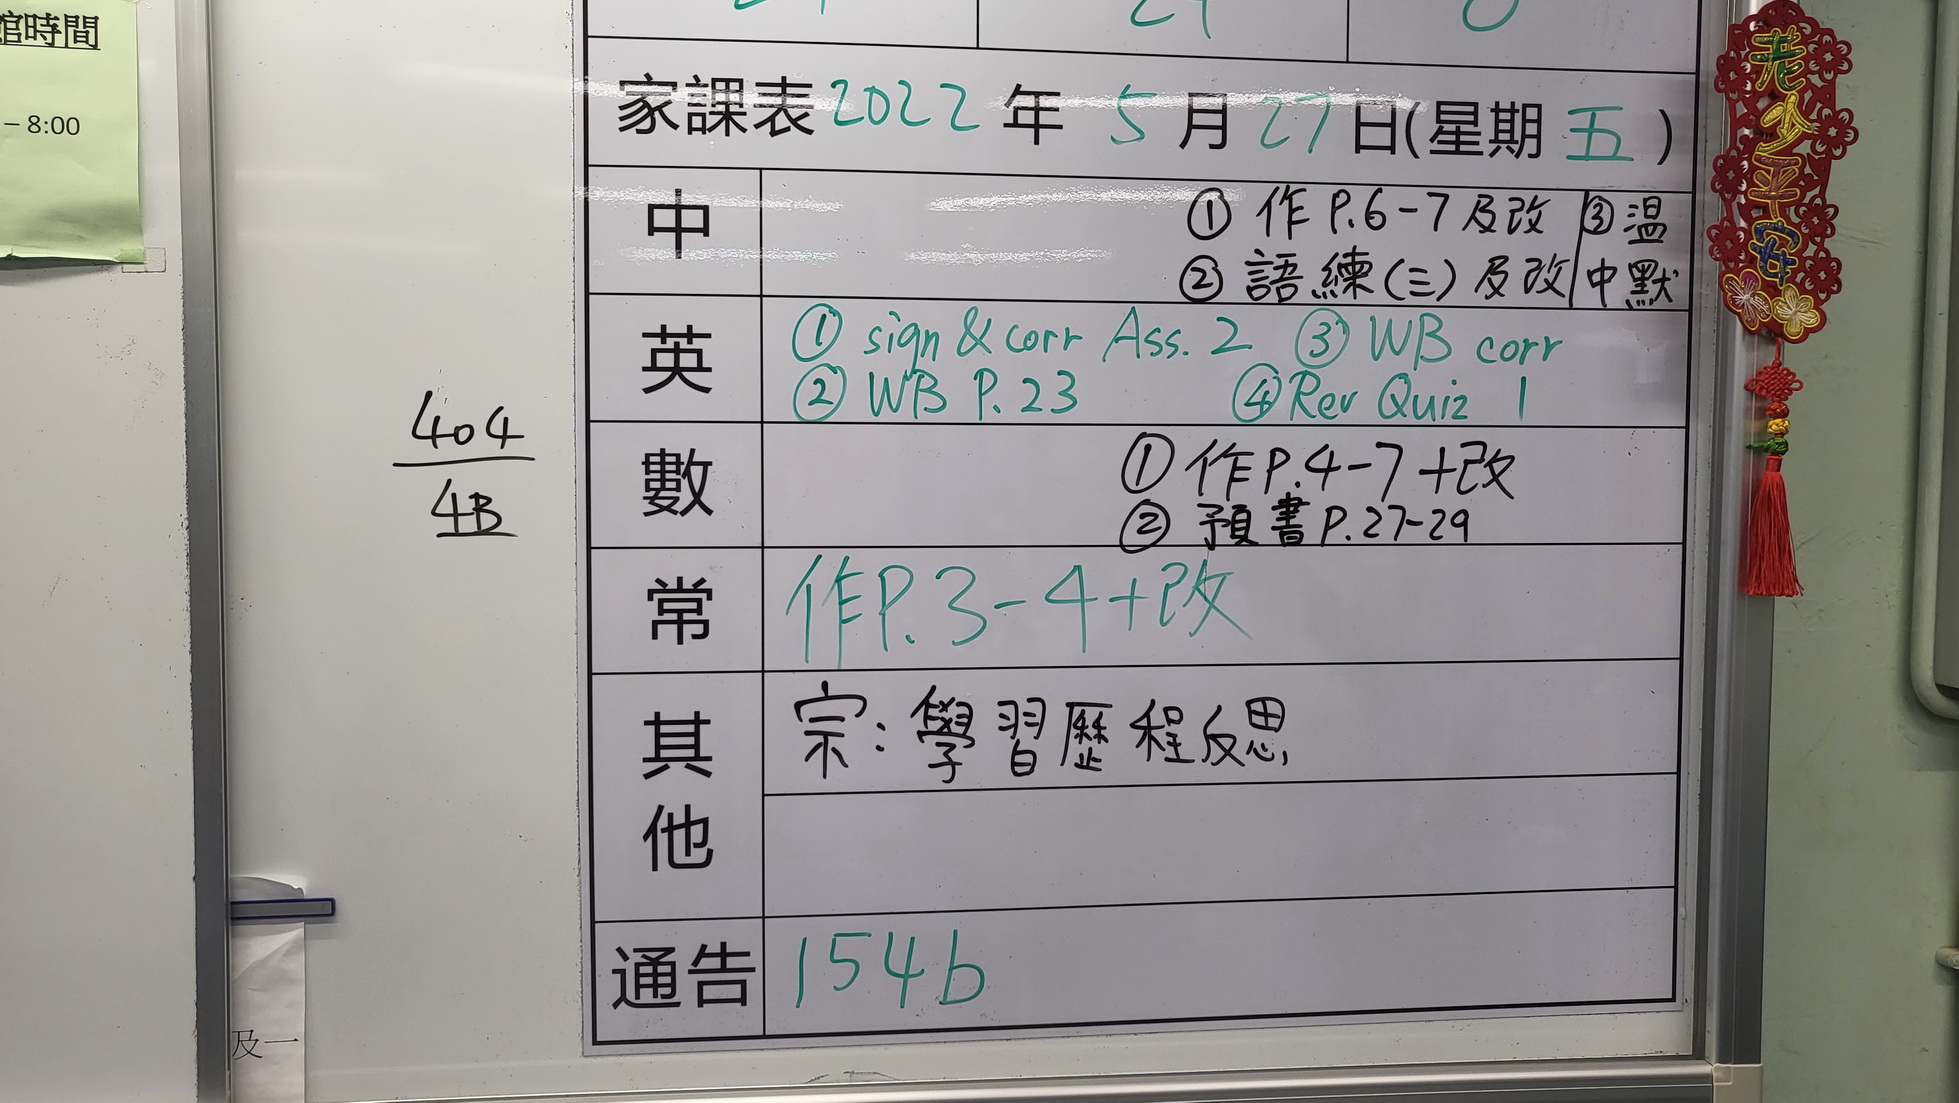 館時間
– 8:00
家課表 2022 年 5 月 27 日(星期 五 )
中
① 作 P.6-7 及改
② 語練(三) 及改
③ 温
中默
英
① sign & corr Ass. 2 ③ WB corr
② WB P.23 ④ Rev Quiz 1
數
① 作P.4-7+改
② 預書P.27-29
常
作P.3-4+改
其他
宗:學習歷程反思
通告
154b
404
4B
及一
老少平安